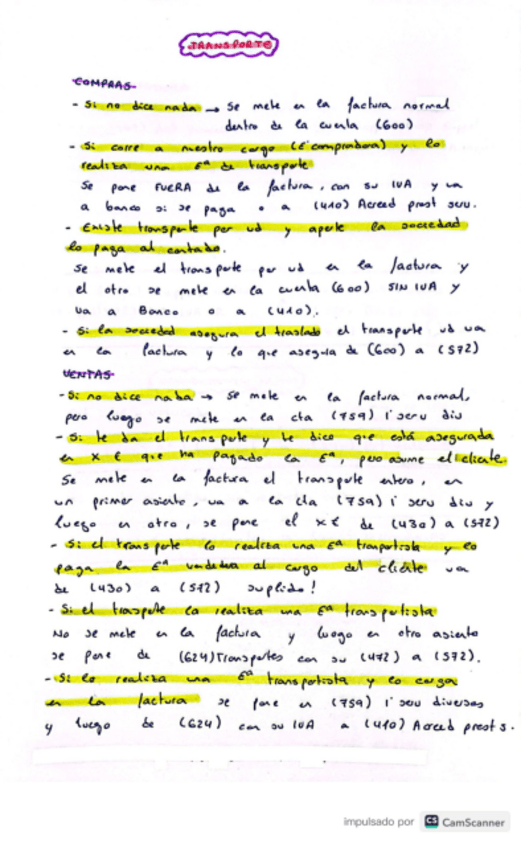 TRANSPORTE
COMPRAS
- Si no dice nada → Se mete en la factura normal
dentro de la cuenta (600)
- Si corre a nuestro cargo (Eª compradora) y lo
realiza una Eª de transporte
Se pone FUERA de la factura, con su IVA y va
a banco si se paga o a (410) Acreed prest serv.
- Existe transporte por ud y aparte la sociedad
lo paga al contado.
Se mete el transporte por ud en la factura y
el otro se mete en la cuenta (600) SIN IVA y
va a Banco o a (410).
- Si la sociedad asegura el traslado el transporte ud va
en la factura y lo que asegura de (600) a (572)
VENTAS
- Si no dice nada → Se mete en la factura normal,
pero luego se mete en la cta (759) I' serv div
- Si te da el transporte y te dice que está asegurada
en X € que ha pagado la Eª, pero asume el cliente.
Se mete en la factura el transporte entero, en
un primer asiento, va a la cta (759) I' serv div y
luego en otro, se pone el X € de (430) a (572)
- Si el transporte lo realiza una Eª transportista y lo
paga la Eª vendedora al cargo del cliente va
de (430) a (572) suplido!
- Si el trasporte la realiza una Eª transportista
No se mete en la factura y luego en otro asiento
se pone de (624) Transportes con su (472) a (572).
- Si lo realiza una Eª transportista y lo carga
en la factura se pone en (759) I' serv diversos
y luego de (624) con su IVA a (410) Acreed prest s.
impulsado por CS CamScanner